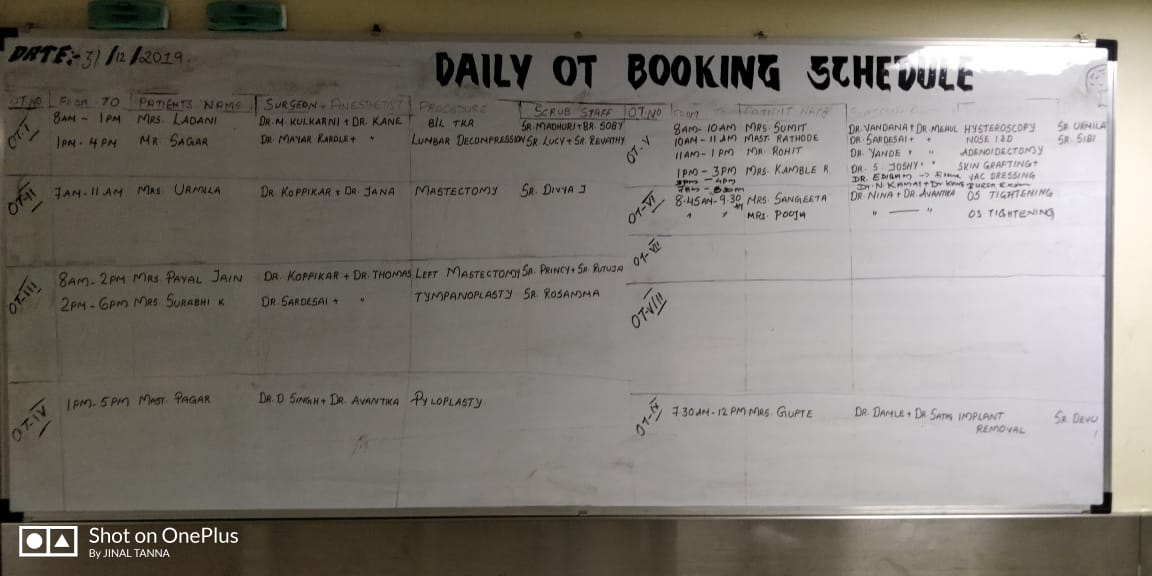 DATE:- 31/12/2019
DAILY OT BOOKING SCHEDULE
OT.NO FROM - TO PATIENTS NAME SURGEON + ANESTHETIST PROCEDURE SCRUB STAFF
OT-I 8AM - 1PM MRS. LADANI DR. M. KULKARNI + DR. KANE B/L TKR SR. MADHURI + BR. SOBY
1PM - 4PM MR. SAGAR DR. MAYAR KARDLE + " LUNBAR DECOMPRESSION SR. LUCY + SR. REVATHY
OT-II 7AM - 11AM MRS. URMILLA DR. KOPPIKAR + DR. JANA MASTECTOMY SR. DIVYA J
OT-III 8AM - 2PM MRS. PAYAL JAIN DR. KOPPIKAR + DR. THOMAS LEFT MASTECTOMY SR. PRINCY + SR. RUTUJA
2PM - 6PM MRS. SURABHI K DR. SARDESAI + " TYMPANOPLASTY SR. ROSAMMA
OT-IV 1PM - 5PM MAST. PAGAR DR. D. SINGH + DR. AVANTIKA PYLOPLASTY
OT.NO FROM PATIENT NAME
OT-V 8AM - 10AM MRS. SUMIT DR. VANDANA + DR. MEHUL HYSTEROSCOPY SR. URMILA
10AM - 11AM MAST. RATHODE DR. SARDESAI + " NOSE I&D SR. SIBI
11AM - 1PM MR. ROHIT DR. YANDE + " ADENOIDECTOMY
1PM - 3PM MRS. KAMBLE R DR. S. JOSHY + " SKIN GRAFTING +
3PM - 4PM VAC DRESSING
OT-VI 8.45AM - 9.30 MRS. SANGEETA DR. NINA + DR. AVANTIKA OS TIGHTENING
" " MRS. POOJA " — " OS TIGHTENING
OT-VII
OT-VIII
OT-IX 7.30AM - 12PM MRS. GUPTE DR. DAMLE + DR. IMPLANT SR. DEVU
REMOVAL
Shot on OnePlus
By JINAL TANNA